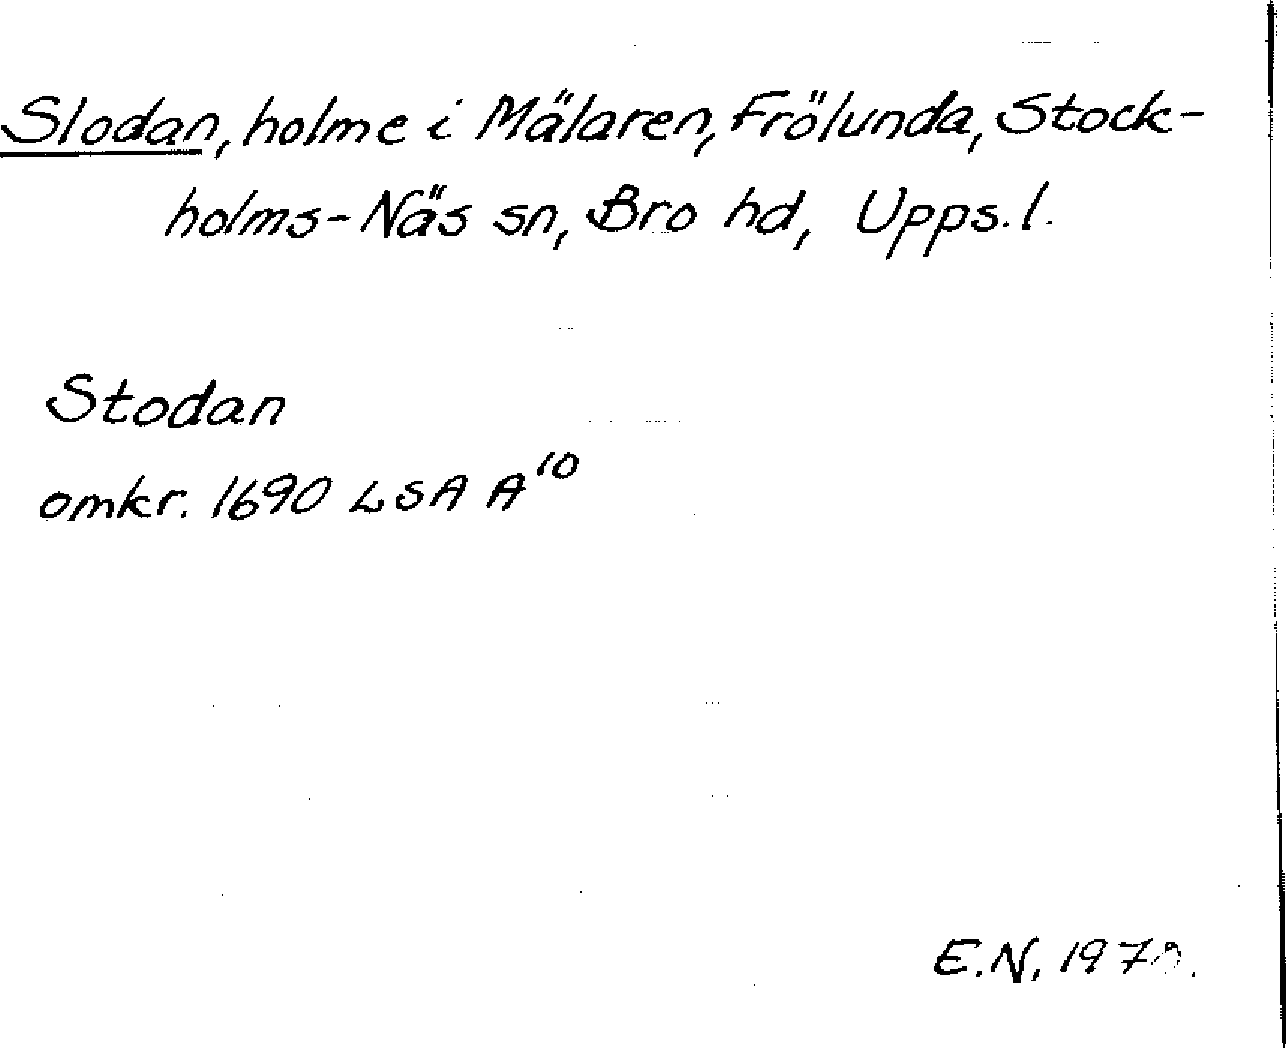 Slodan, holme i Mälaren, Frölunda, Stock-
holms-Näs sn, Bro hd, Upps. l.
Stodan
omkr. 1690 LSA A¹⁰
E.N.